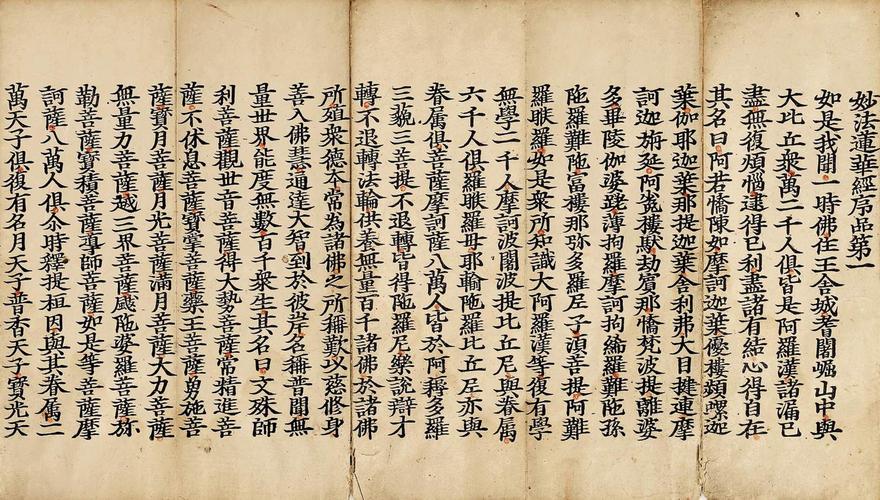 妙法蓮華經序品第一
如是我聞一時佛住王舍城耆闍崛山中與
大比丘衆萬二千人俱皆是阿羅漢諸漏已
盡無復煩惱逮得己利盡諸有結心得自在
其名曰阿若憍陳如摩訶迦葉優樓頻螺迦
葉伽耶迦葉那提迦葉舍利弗大目揵連摩
訶迦旃延阿㝹樓馱劫賓那憍梵波提離婆
多畢陵伽婆蹉薄拘羅摩訶拘絺羅難陁孫
陁羅難陁富樓那弥多羅尼子湏菩提阿難
羅睺羅如是衆所知識大阿羅漢等復有學
無學二千人摩訶波闍波提比丘尼與眷属
六千人俱羅睺羅母耶輸陁羅比丘尼亦與
眷属俱菩薩摩訶薩八萬人皆於阿耨多羅
三藐三菩提不退轉皆得陁羅尼樂說辯才
轉不退轉法輪供養無量百千諸佛於諸佛
所殖衆德本常為諸佛之所稱歎以慈修身
善入佛慧通達大智到於彼岸名稱普聞無
量世界能度無數百千衆生其名曰文殊師
利菩薩觀世音菩薩得大勢菩薩常精進菩
薩不休息菩薩寶掌菩薩藥王菩薩勇施菩
薩寶月菩薩月光菩薩滿月菩薩大力菩薩
無量力菩薩越三界菩薩颰陁婆羅菩薩弥
勒菩薩寶積菩薩導師菩薩如是等菩薩摩
訶薩八萬人俱尒時釋提桓因與其眷属二
萬天子俱復有名月天子普香天子寶光天